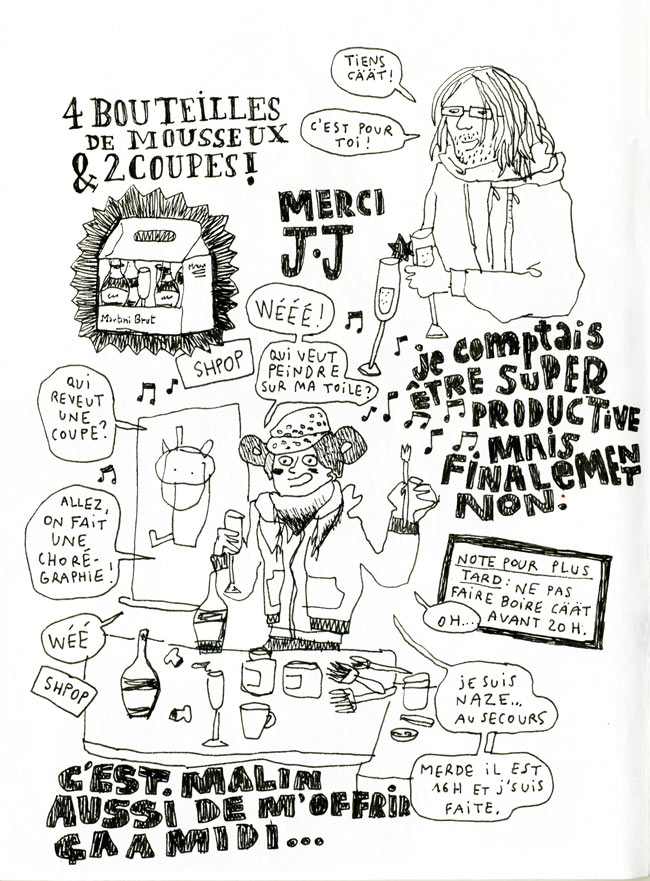 TIENS
CÄÄT!
C'EST POUR
TOI!
4 BOUTEILLES
DE MOUSSEUX
& 2 COUPES!
MERCI
J.J
Martini Brut
WÉÉÉ!
SHPOP
QUI VEUT
PEINDRE
SUR MA TOILE?
je comptais
ÊTRE SUPER
PRODUCTIVE
MAIS
FINALEMENT
NON.
QUI
REVEUT
UNE
COUPE?
ALLEZ,
ON FAIT
UNE
CHORÉ-
GRAPHIE!
NOTE POUR PLUS
TARD: NE PAS
FAIRE BOIRE CÄÄT
AVANT 20 H.
OH...
WÉÉ
SHPOP
JE SUIS
NAZE...
AU SECOURS
MERDE iL EST
16H ET J'SUIS
FAITE.
C'EST MALIN
AUSSI DE M'OFFRIR
ÇA A MIDI...